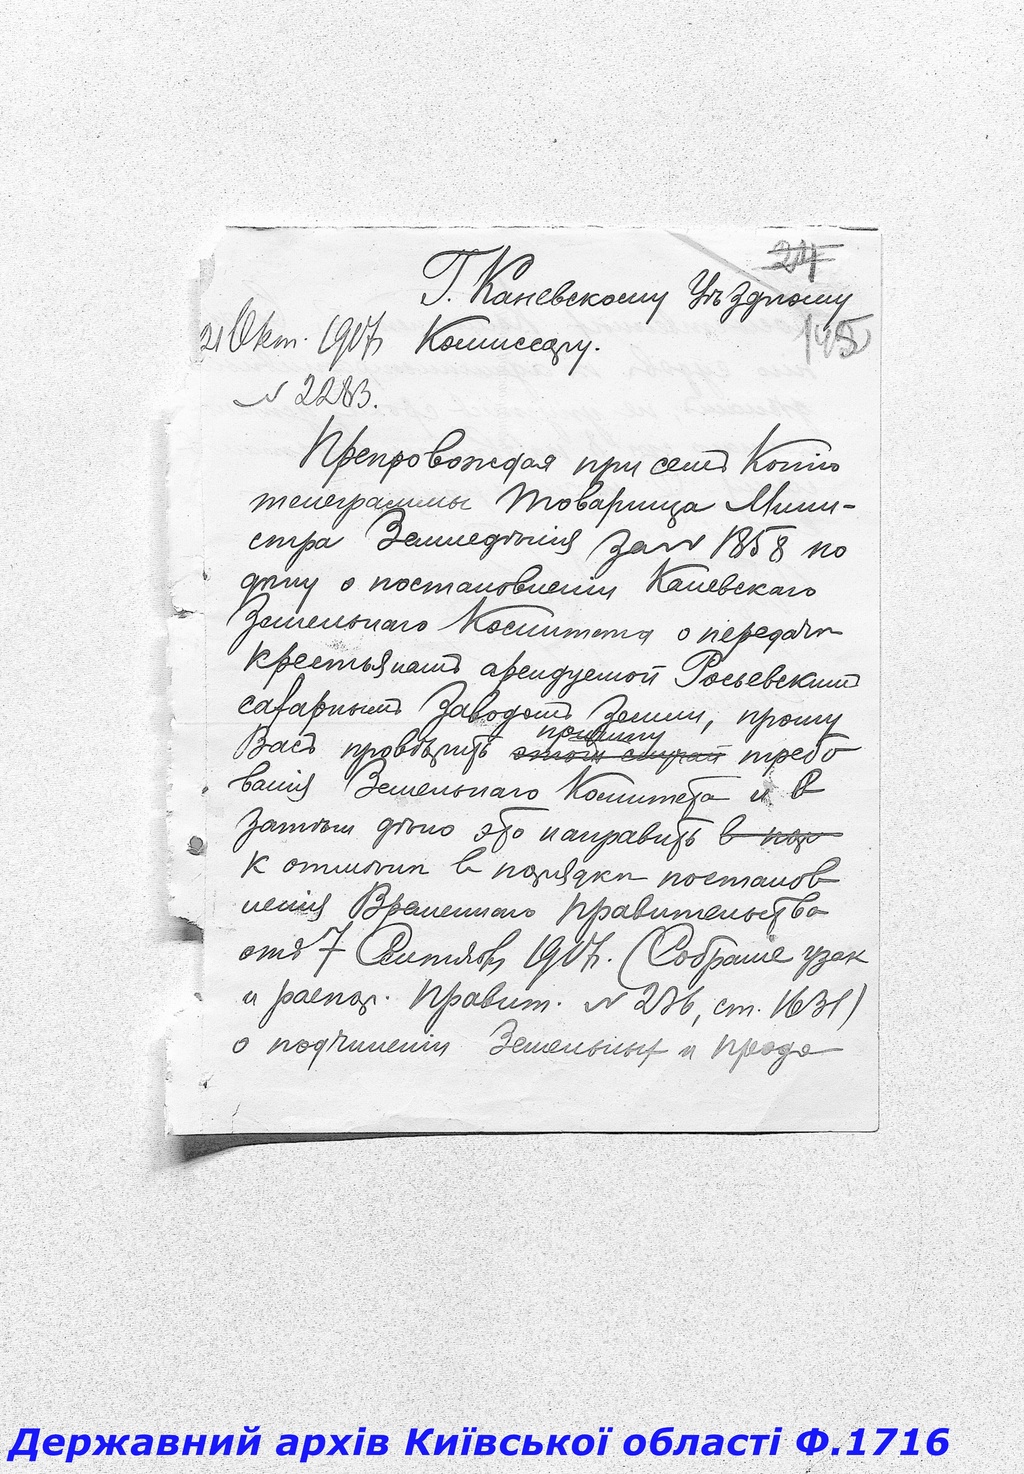 24
Г. Каневскому Уѣздному
21 Окт. 1917 Комиссару.
145
№ 2283.
Препровождая при семъ копію
телеграммы Товарища Мини-
стра Земледѣлія за № 1858 по
дѣлу о постановленіи Каневскаго
Земельнаго Комитета о передачѣ
крестьянамъ арендуемой Росьевскимъ
сахарнымъ Заводомъ Земли, прошу
Васъ провѣрить этотъ случай требо
вания Земельнаго Комитета и в
затѣм дѣло это направить в пор
к отмѣнѣ в порядкѣ постанов
ленія Временнаго Правительства
отъ 7 Сентября 1917. (Собраніе узак
и распор. Правит. № 236, ст. 1631)
о подчиненіи Земельных и продо
Державний архів Київської області Ф.1716